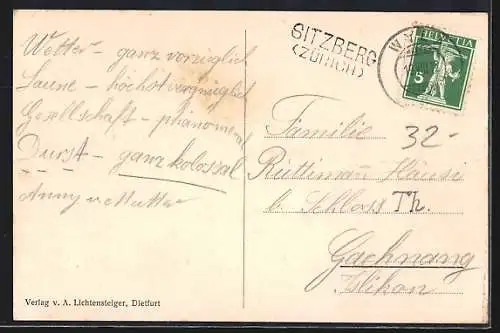 Wetter – ganz vorzüglich
Laune – höchst vergnüglich
Gesellschaft – phänomenal
Durst – ganz kolossal
Anny u. Mutter
Verlag v. A. Lichtensteiger, Dietfurt
SITZBERG
(ZÜRICH)
HELVETIA
5
Familie
32-
Rüttimann Häusi
b. Schloss Th.
Gachnang
Islikon